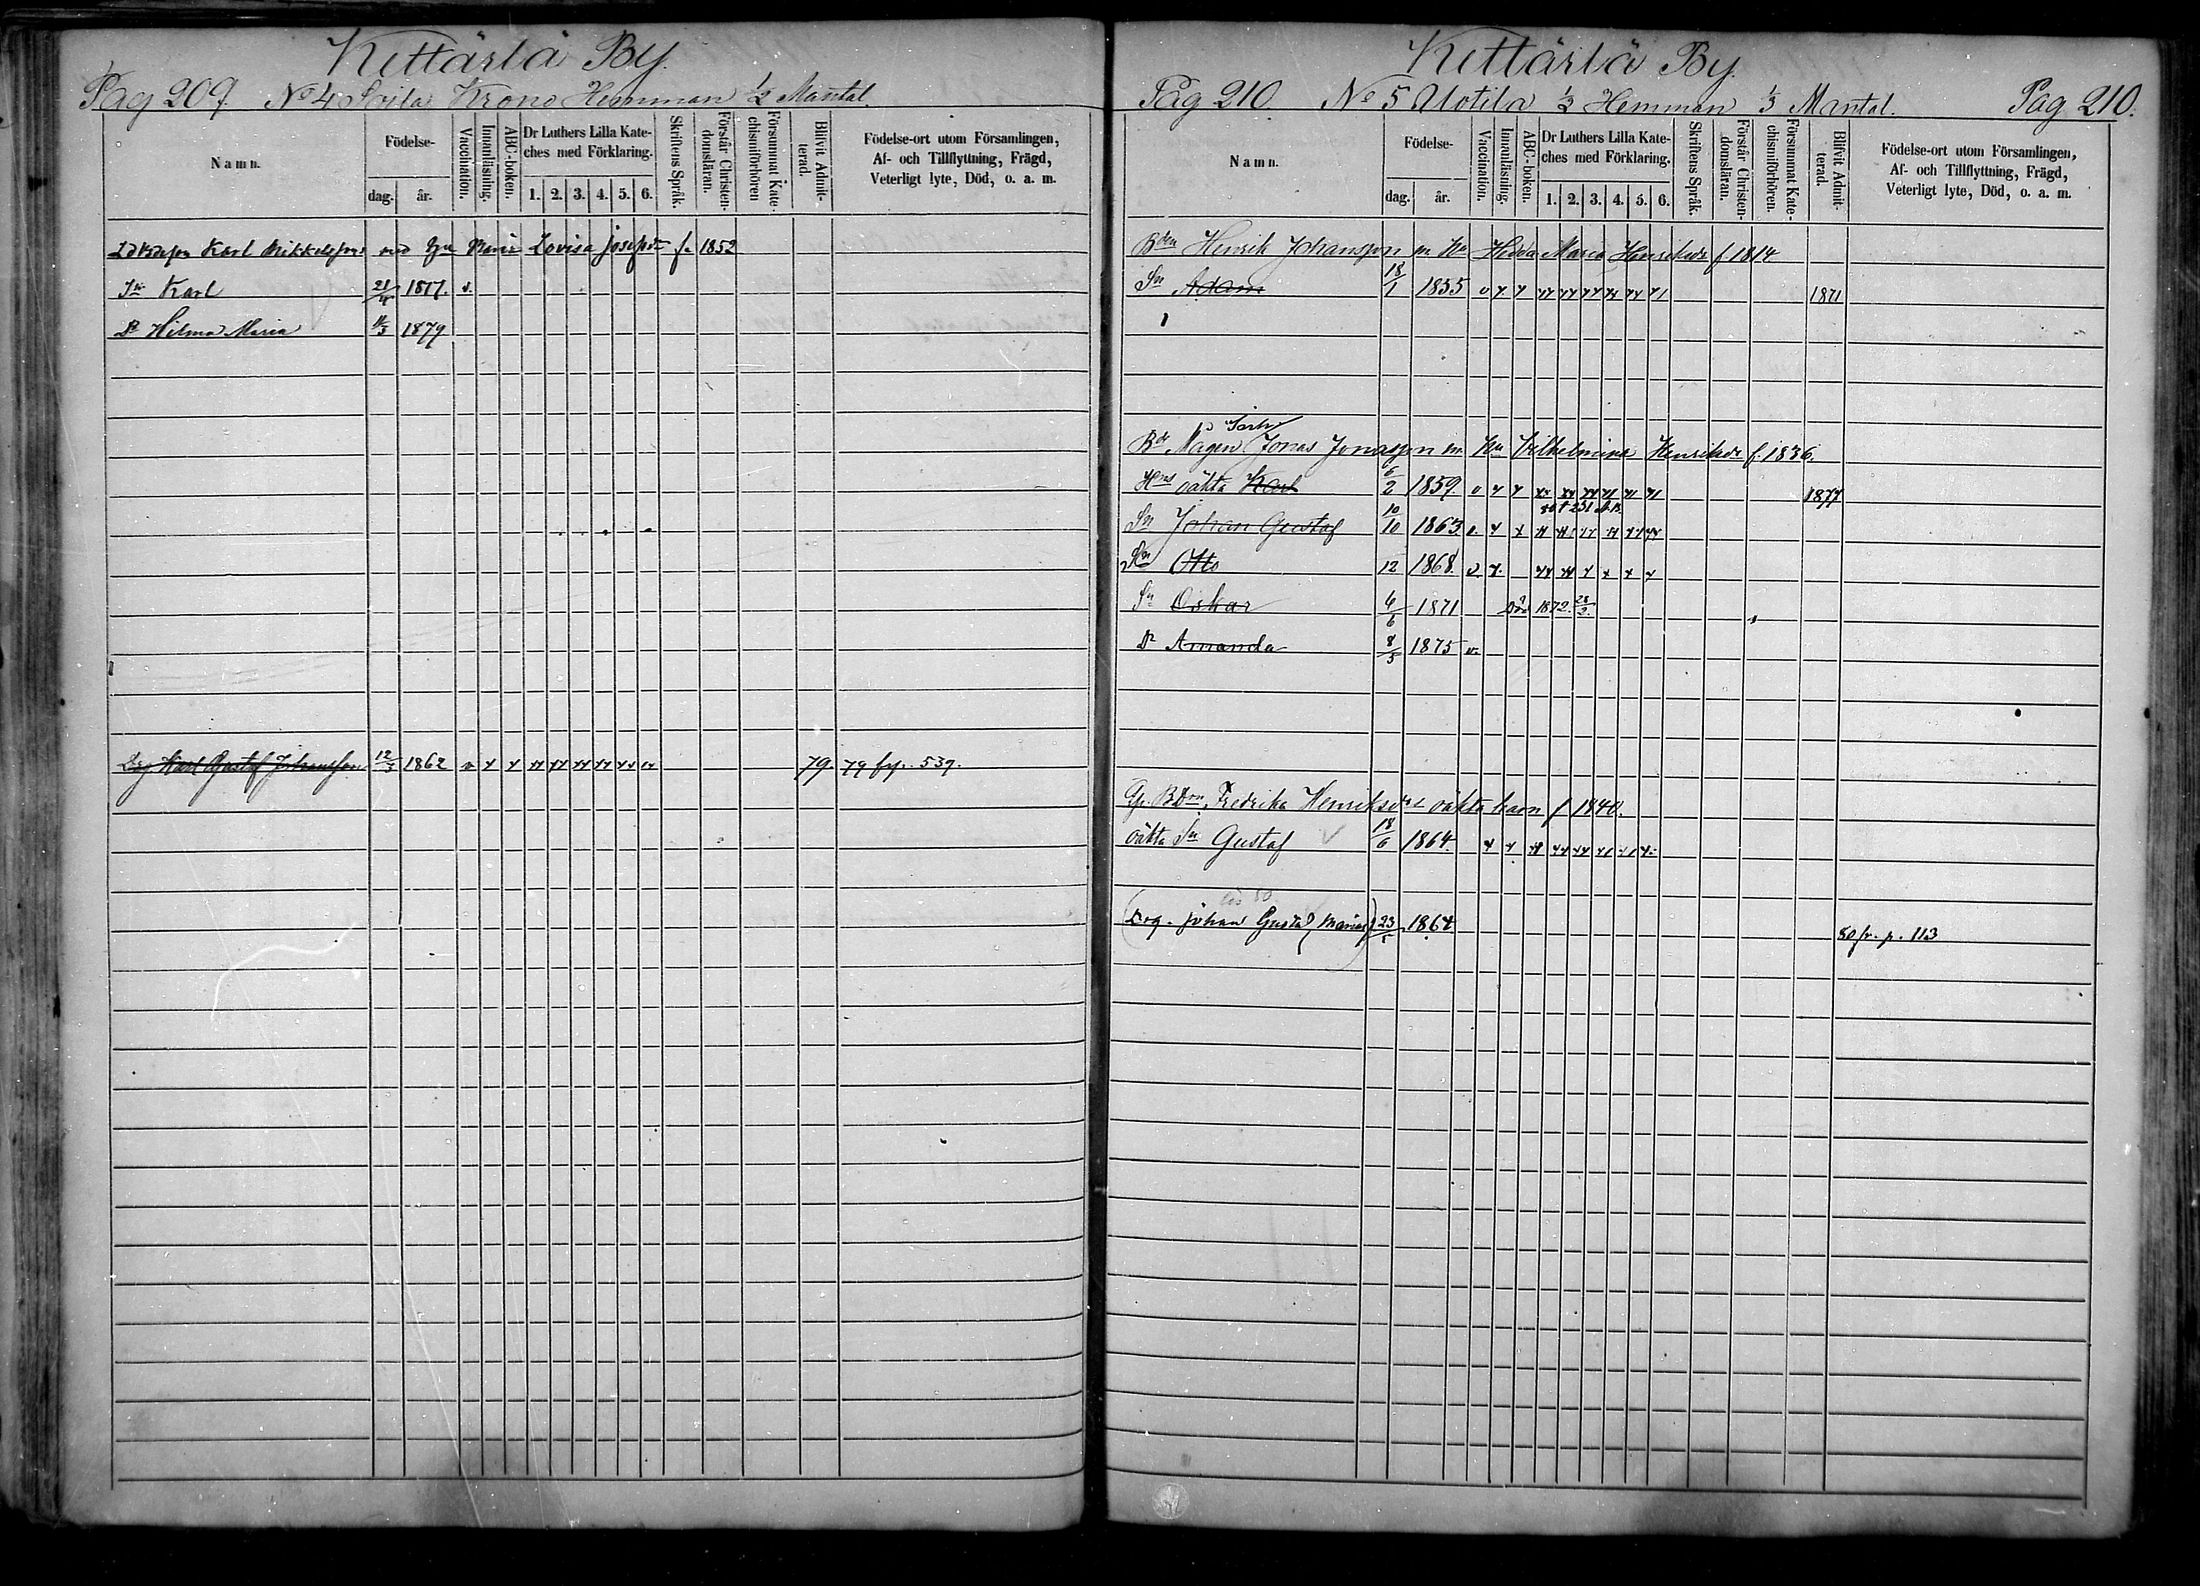 Kettärlä By.
Pag 209. No 4 Soila Krono Hemman 1/2 Mantal.
Namn.
Födelse-
dag.
år.
Vaccination.
Innanläsning.
ABC-boken.
Dr Luthers Lilla Kate-
ches med Förklaring.
1. 2. 3. 4. 5. 6.
Skriftens Språk.
Förstår Christen-
domsläran.
Försummat Kate-
chismiförhören
Blifvit Admit-
terad.
Födelse-ort utom Församlingen,
Af- och Tillflyttning, Frägd,
Veterligt lyte, Död, o. a. m.
Karl Mikkelsson med Lovisa Josefsdr f. 1852
Sn Karl 21/4 1877. v.
Dr Hilma Maria 11/3 1879
Drg Karl Gustaf Johansson 12/3 1862 79. 79 539.
Kettärlä By.
Pag 210. No 5 Uotila 1/3 Hemman 1/3 Mantal. Pag 210.
Namn.
Födelse-
dag.
år.
Vaccination.
Innanläsning.
ABC-boken.
Dr Luthers Lilla Kate-
ches med Förklaring.
1. 2. 3. 4. 5. 6.
Skriftens Språk.
Förstår Christen-
domsläran.
Försummat Kate-
chismiförhören.
Blifvit Admit-
terad.
Födelse-ort utom Församlingen,
Af- och Tillflyttning, Frägd,
Veterligt lyte, Död, o. a. m.
Bden Henrik Johansson m Hu Hedda Maria Henriksdr f 1814
Sn Adam 18/1 1855 1871
Bd Mågen Jonas Jonasson m. Hu Vilhelmina Henriksdr f. 1836.
Hns oäkta Karl 6/2 1859 1877
Sn Johan Gustaf 10/10 1863
Sn Otto 12 1868.
Sn Oskar 4/6 1871 Död 1872. 28/2.
Dr Amanda 8/5 1875 v.
Fredrika Henriksdrs oäkta barn f 1840.
oäkta Sn Gustaf 18/6 1864.
(Drg. Johan Gustaf) 23/5 1864 80 fr. p. 113